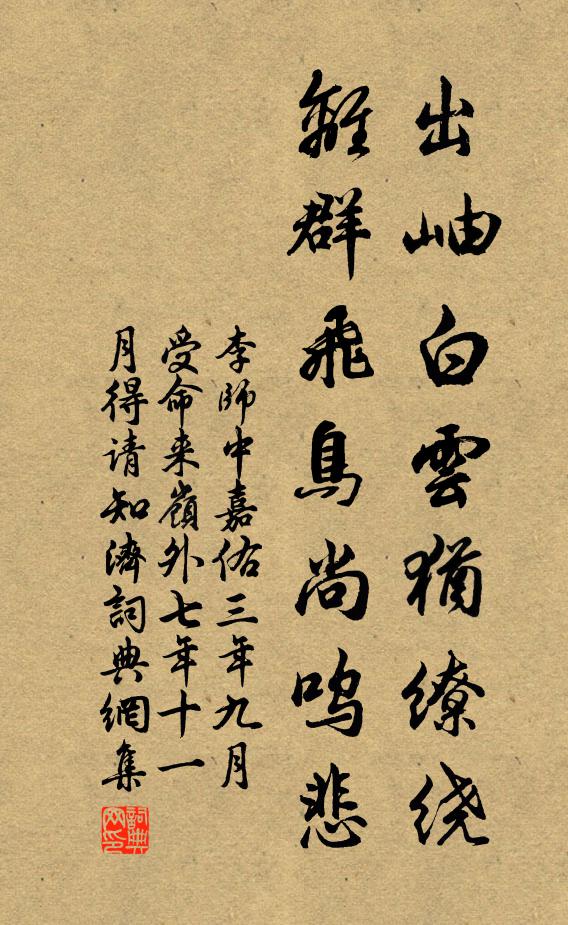 出岫白雲猶缭绕
離群飛鳥尚鸣悲
李師中嘉佑三年九月
受命来嶺外七年十一
月得请知濟詞典網集
詞典网印